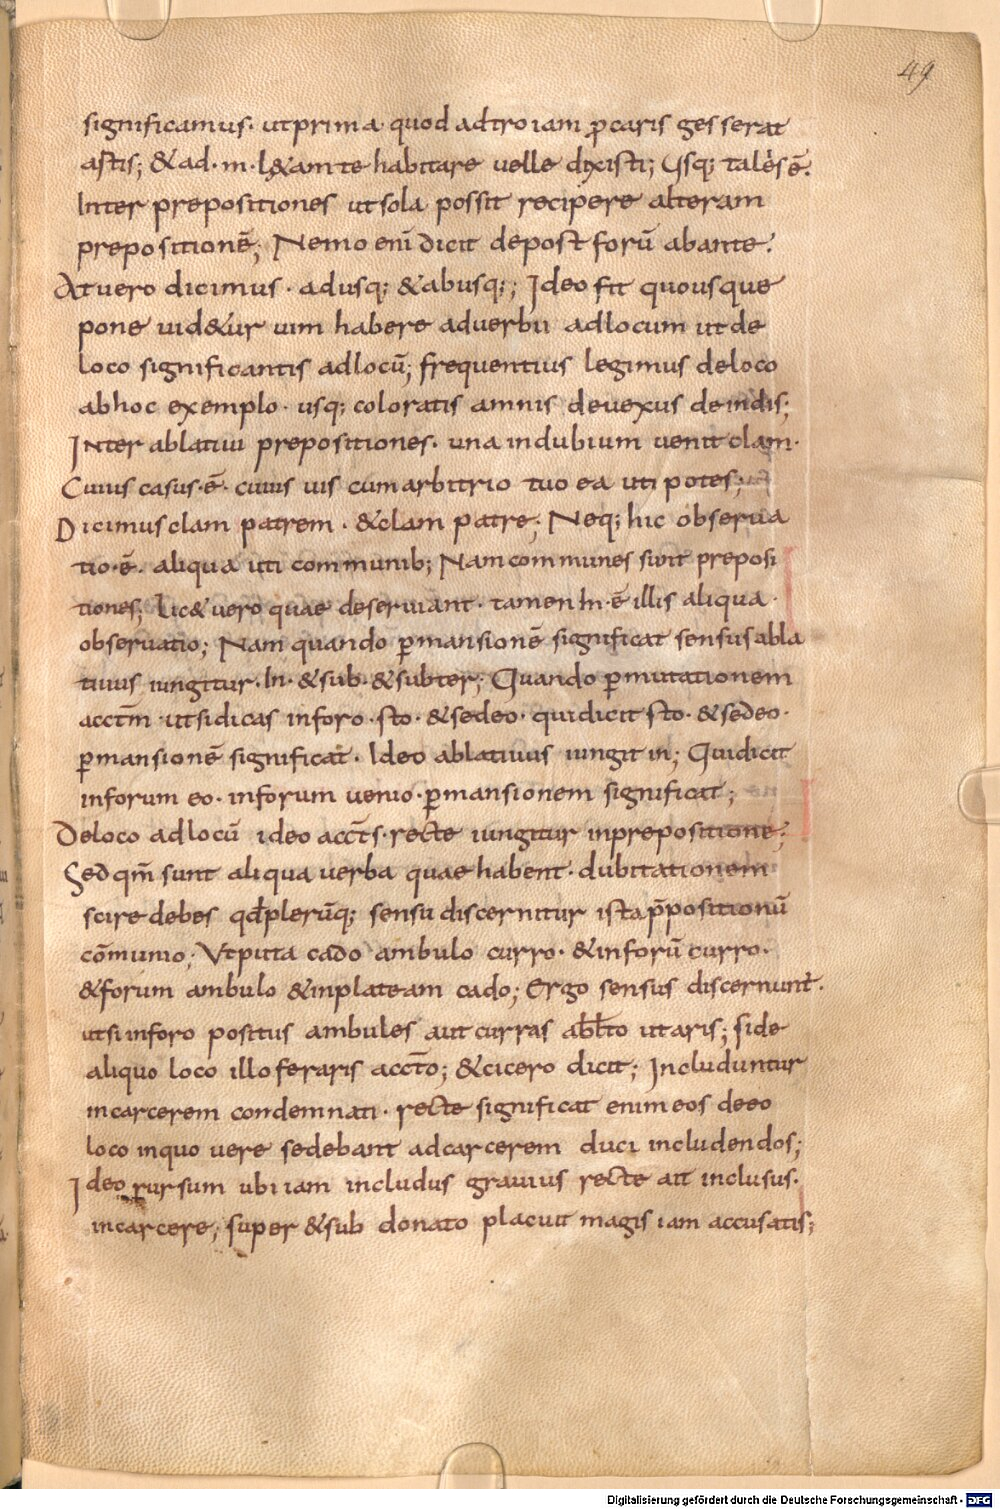 49
significamus· ut prima quod ad troiam p̱ caris gesserat
astis; & ad·m·l&am te habitare uelle dixisti; Usq; talės ē·
Inter prepositiones ut sola possit recipere alteram
prepositionē; Nemo enī dicit de post forū ab ante·
At uero dicimus· adusq; & abusq;; Ideo fit quousque
pone uid&ur uim habere aduerbii ad locum ut de
loco significantis ad locū; frequentius legimus de loco
ab hoc exemplo· usq; coloratis amnis deuexus de indis;
Inter ablatiui prepositiones· una in dubium uenit clam·
Cuius casus·ē· cuius uis cum arbitrio tuo ea uti potes;
Dicimus clam patrem· & clam patre; Neq; hic obserua
tio·ē· aliqua uti communib; Nam communes sunt preposi
tiones; Lic& uero quae deseruiant· tamen In·ē illis aliqua·
obseruatio; Nam quando p̱mansionē significat sensus abla
tiuus iungitur·In· & sub· & subter; Quando p̱mutationem
acctm̄ ut si dicas in foro·sto· & sedeo· qui dicit sto· & sedeo·
p̱mansionē significat· Ideo ablatiuus iungit in; Qui dicit
in forum eo· in forum uenio· p̱mansionem significat;
De loco ad locū ideo acct̄s· recte iungitur in prepositione;
Sed qm̄ sunt aliqua uerba quae habent· dubitationem
scire debes qđ plerūq; sensu discernitur ista p̄positionū
cōmunio; Ut puta cado ambulo curro· & in forū curro·
& forum ambulo & in plateam cado; Ergo sensus discernunt·
ut si in foro positus ambules aut curras ablto utaris; si de
aliquo loco illo feraris acct̄o; & cicero dicit; Includuntur
in carcerem condemnati· recte significat enim eos de eo
loco in quo uere sedebant ad carcerem duci includendos;
Ideo rursum ubi iam includus grauius recte ait inclusus·
in carcere; super & sub donato placuit magis iam accusatis;
Digitalisierung gefördert durch die Deutsche Forschungsgemeinschaft - DFG